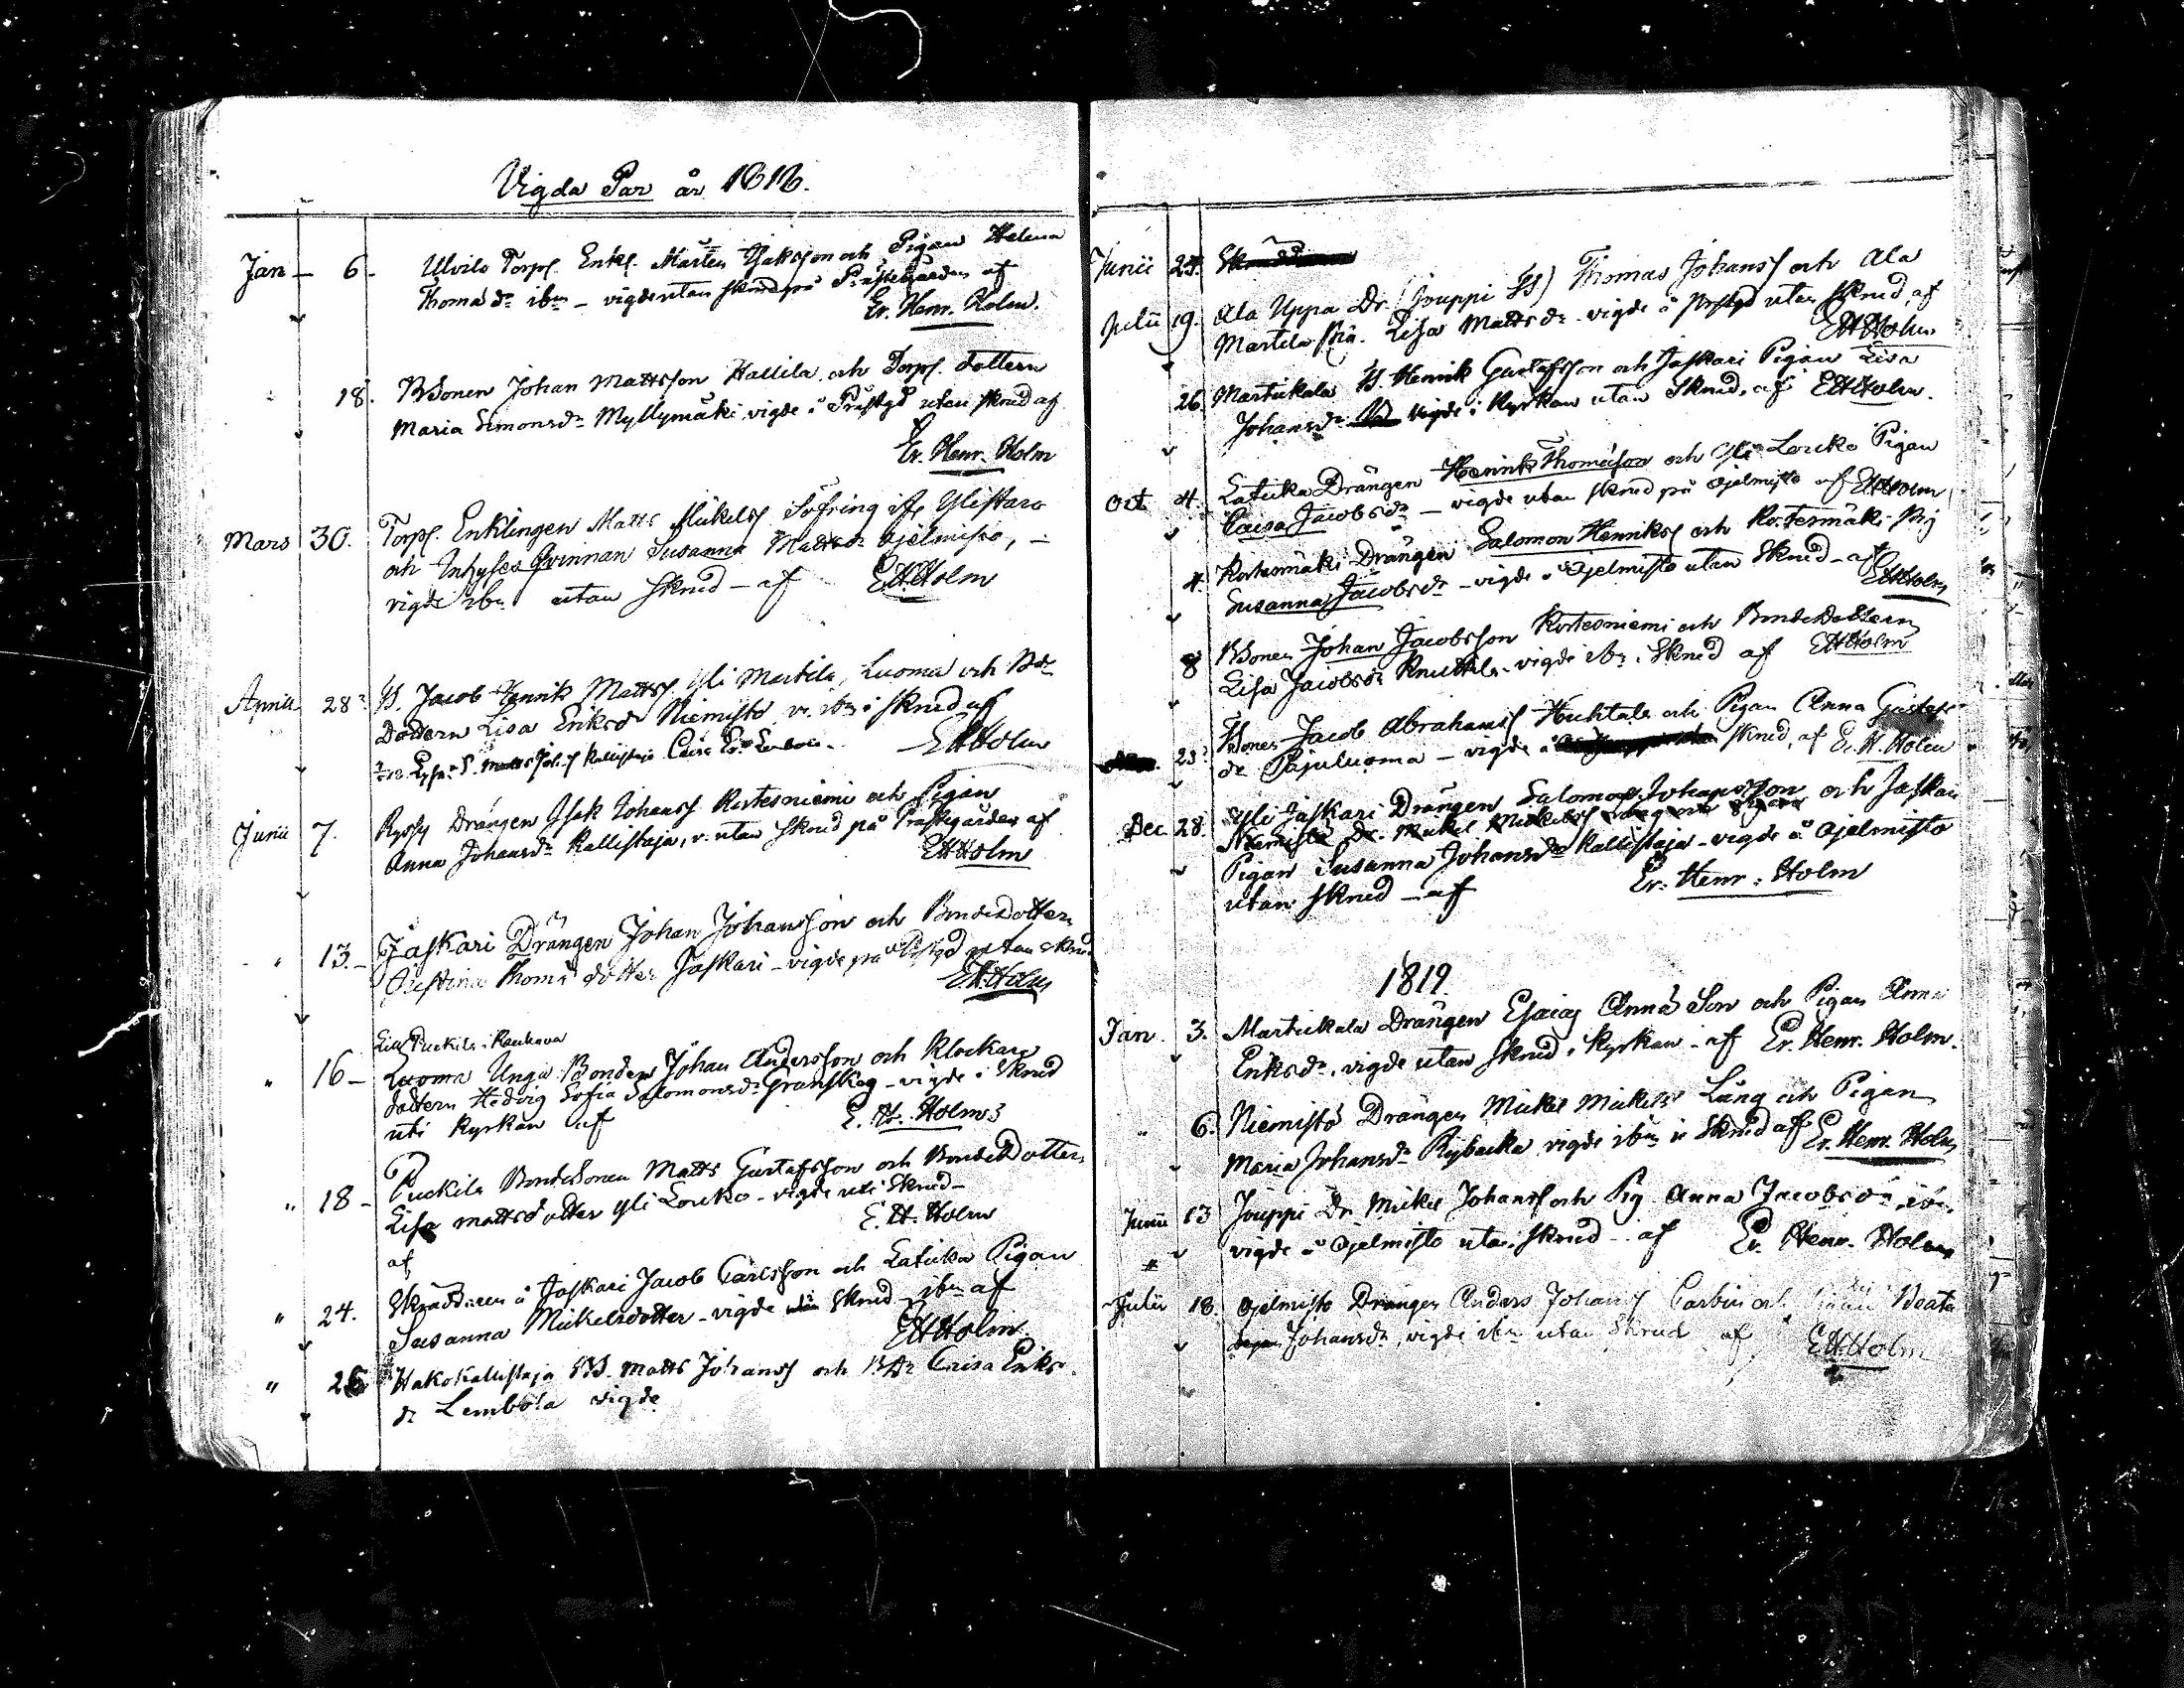 Vigda Par år 1818.
Jan – 6. Ulvila Torp. Enkl. Mårten Isaksson och Pigan Helena
Thomæ dr ibm – vigde utan skrud på Prästgården af
Er. Henr. Holm.
18. BSonen Johan Mattsson Hallila och Torp. dottern
Maria Simonsdr Myllymäki vigde i Prästgd utan skrud af
Er. Henr. Holm
Mars 30. Torp. Enklingen Matts Mickels Söfring ifr Ylistaro
och Inhyses Qvinnan Susanna Mattsdr Ojelmisto, –
vigde ibm utan skrud – af EHHolm
Aprill 28 B. Jacob Henrik Matts Yli Martila, Luoma och Bde
Dottern Lisa Eriksdr Niemistö v. ibm i skrud af
EHHolm
Junii 7. Ryssy Drängen Isak Johanss Kortesniemi och Pigan
Anna Johansdr Kallistaja, v. utan skrud på Prästgården af
EHHolm
" 13. – Jaskari Drängen Johan Johansson och Bondedottern
Justina Thomæ dotter Jaskari – vigde på Prästgd utan skrud
EHHolm
Lill Puckila i Kauhava
" 16 – Luoma Unga Bonden Johan Andersson och Klockare
dottern Hedvig Sofia Salomonsdr Granskog – vigde i Skrud
uti Kyrkan af E. H. Holm
" 18 – Puckila Bondesonen Matts Gustafsson och Bondedottern
Lisa Mattsdotter Yli Louko – vigde uti Skrud –
af E. H. Holm
" 24. Skräddaren å Jaskari Jacob Carlsson och Latuka Pigan
Susanna Mickelsdotter – vigde i Skrud – ibm af
EHHolm
" 26 Hakokallistaja BS. Matts Johanss och BDr Caisa Eriks
dr Lembola vigde
Junii 24.
Julii 19. Ala Uppa Dr. (Jouppi BS) Thomas Johanss och Ala
Martila Pig. Lisa Mattsdr – vigde å Prstgd utan skrud af
EHHolm
26. Martikala B. Henrik Gustafsson och Jaskari Pigan Lisa
Johansdr vigde i Kyrkan utan Skrud, af EHHolm.
Oct 4. Latuka Drängen Henrik Thomæson och Yli Louko Pigan
Caisa Jacobsdr – vigde utan skrud på Ojelmisto af EHHolm
4. Kortesmäki Drängen Salomon Henriks och Kortesmäki Pig
Susanna Jacobsdr – vigde å Ojelmisto utan Skrud – af
EHHolm
8 BSonen Johan Jacobsson Kortesniemi och BondeDottern
Lisa Jacobsdr Knuttila – vigde ibm i Skrud af EHHolm
23 BSonen Jacob Abrahamss Huhtala och Pigan Anna Gustafs
dr Pajuluoma – vigde i skrud, af E. H. Holm
Dec 28. Yli Jaskari Drängen Salomon Johansson och Jaskari
Niemistö Dr. Mickel Mickelss Lång och Pigan
Pigan Susanna Johansdr Kallistaja – vigde å Ojelmisto
utan skrud – af Er: Henr: Holm
1819
Jan. 3. Martikala Drängen Esaias Annæ Son och Pigan Anna
Eriksdr, vigde utan skrud i Kyrkan – af Er. Henr. Holm.
" 6. Niemistö Drängen Mickel Mickelss Lång och Pigan
Maria Johansdr Rybacka vigde ibm i Skrud af Er. Henr. Holm
Junii 13 Jouppi Dr. Mickel Johanss och Pig. Anna Jacobsdr ibm,
vigde å Ojelmisto utan skrud – af Er. Henr. Holm
Julii 18. Ojelmisto Drängen Anders Johanss Carbin och Beata
Johansdr, vigde ibm utan Skrud af EHHolm